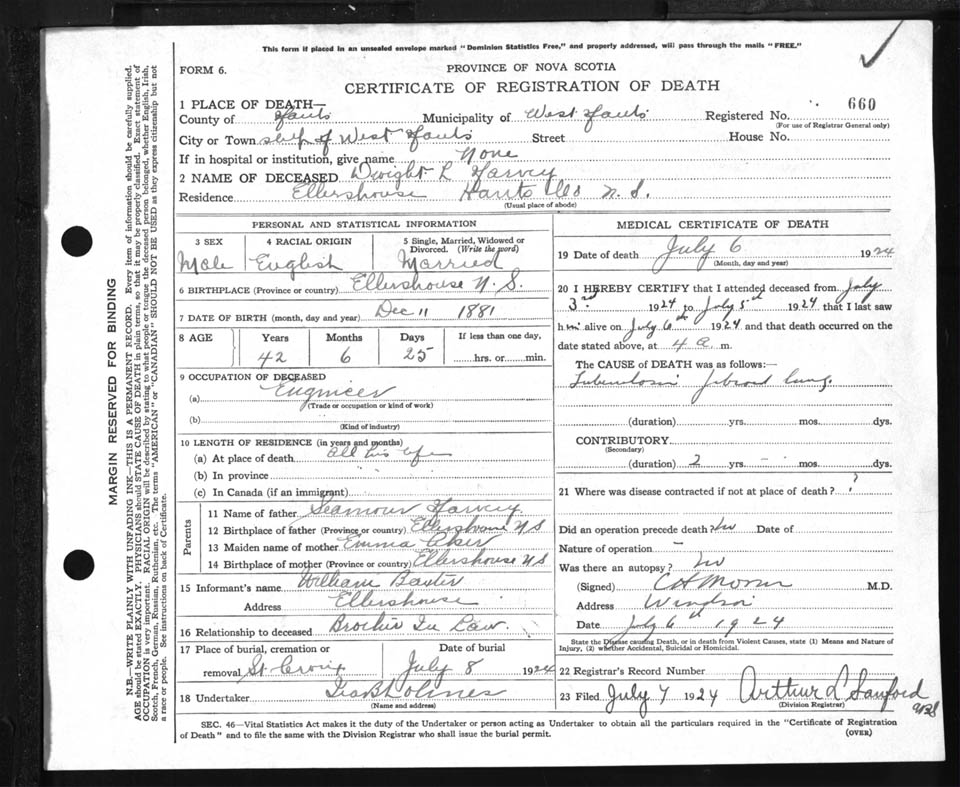 This form if placed in an unsealed envelope marked "Dominion Statistics Free," and properly addressed, will pass through the mails "FREE."
FORM 6.
PROVINCE OF NOVA SCOTIA
CERTIFICATE OF REGISTRATION OF DEATH
MARGIN RESERVED FOR BINDING
N.B.—WRITE PLAINLY WITH UNFADING INK—THIS IS A PERMANENT RECORD. Every item of information should be carefully supplied.
AGE should be stated EXACTLY. PHYSICIANS should STATE CAUSE OF DEATH in plain terms, so that it may be properly classified. Exact statement of
OCCUPATION is very important. RACIAL ORIGIN will be described by stating to what people or tongue the deceased person belonged, whether English, Irish,
Scotch, French, German, Russian, Ruthenian, etc. The terms "AMERICAN" or "CANADIAN" SHOULD NOT BE USED as they express citizenship but not
a race or people. See instructions on back of Certificate.
1 PLACE OF DEATH—
County of Hants Municipality of West Hants Registered No. 660
(For use of Registrar General only)
City or Town of West Hants Street House No.
If in hospital or institution, give name None
2 NAME OF DECEASED Dwight L Harvey
Residence Ellershouse Hants Co N.S.
(Usual place of abode)
PERSONAL AND STATISTICAL INFORMATION
3 SEX 4 RACIAL ORIGIN 5 Single, Married, Widowed or
Divorced. (Write the word)
Male English Married
6 BIRTHPLACE (Province or country) Ellershouse N.S.
7 DATE OF BIRTH (month, day and year) Dec 11 1881
8 AGE Years Months Days If less than one day,
42 6 25 hrs. or min.
9 OCCUPATION OF DECEASED
(a) Engineer
(Trade or occupation or kind of work)
(b)
(Kind of industry)
10 LENGTH OF RESIDENCE (in years and months)
(a) At place of death All his life
(b) In province
(c) In Canada (if an immigrant)
Parents
11 Name of father Seamour Harvey
12 Birthplace of father (Province or country) Ellershouse N S
13 Maiden name of mother Emma
14 Birthplace of mother (Province or country) Ellershouse N S
15 Informant's name William Baxter
Address Ellershouse
16 Relationship to deceased Brother In Law
17 Place of burial, cremation or Date of burial
removal St Croix July 8 1924
18 Undertaker Geo B Holmes
(Name and address)
MEDICAL CERTIFICATE OF DEATH
19 Date of death July 6 1924
(Month, day and year)
20 I HEREBY CERTIFY that I attended deceased from July
3rd 1924 to July 5th 1924 that I last saw
him alive on July 6th 1924 and that death occurred on
date stated above, at 4 a. m.
The CAUSE OF DEATH was as follows:—
Tuberculosis fibroid lung
(duration) yrs. mos. dys.
CONTRIBUTORY
(Secondary)
(duration) 2 yrs. - mos. dys.
21 Where was disease contracted if not at place of death? ?
Did an operation precede death? No Date of
Nature of operation –
Was there an autopsy? No
(Signed) M.D.
Address Windsor
Date July 6th 1924
State the Disease causing Death, or in death from Violent Causes, state (1) Means and Nature of
Injury, (2) whether Accidental, Suicidal or Homicidal.
22 Registrar's Record Number
23 Filed July 7 1924 Arthur L Sanford
(Division Registrar)
SEC. 46—Vital Statistics Act makes it the duty of the Undertaker or person acting as Undertaker to obtain all the particulars required in the "Certificate of Registration
of Death" and to file the same with the Division Registrar who shall issue the burial permit.
(OVER)